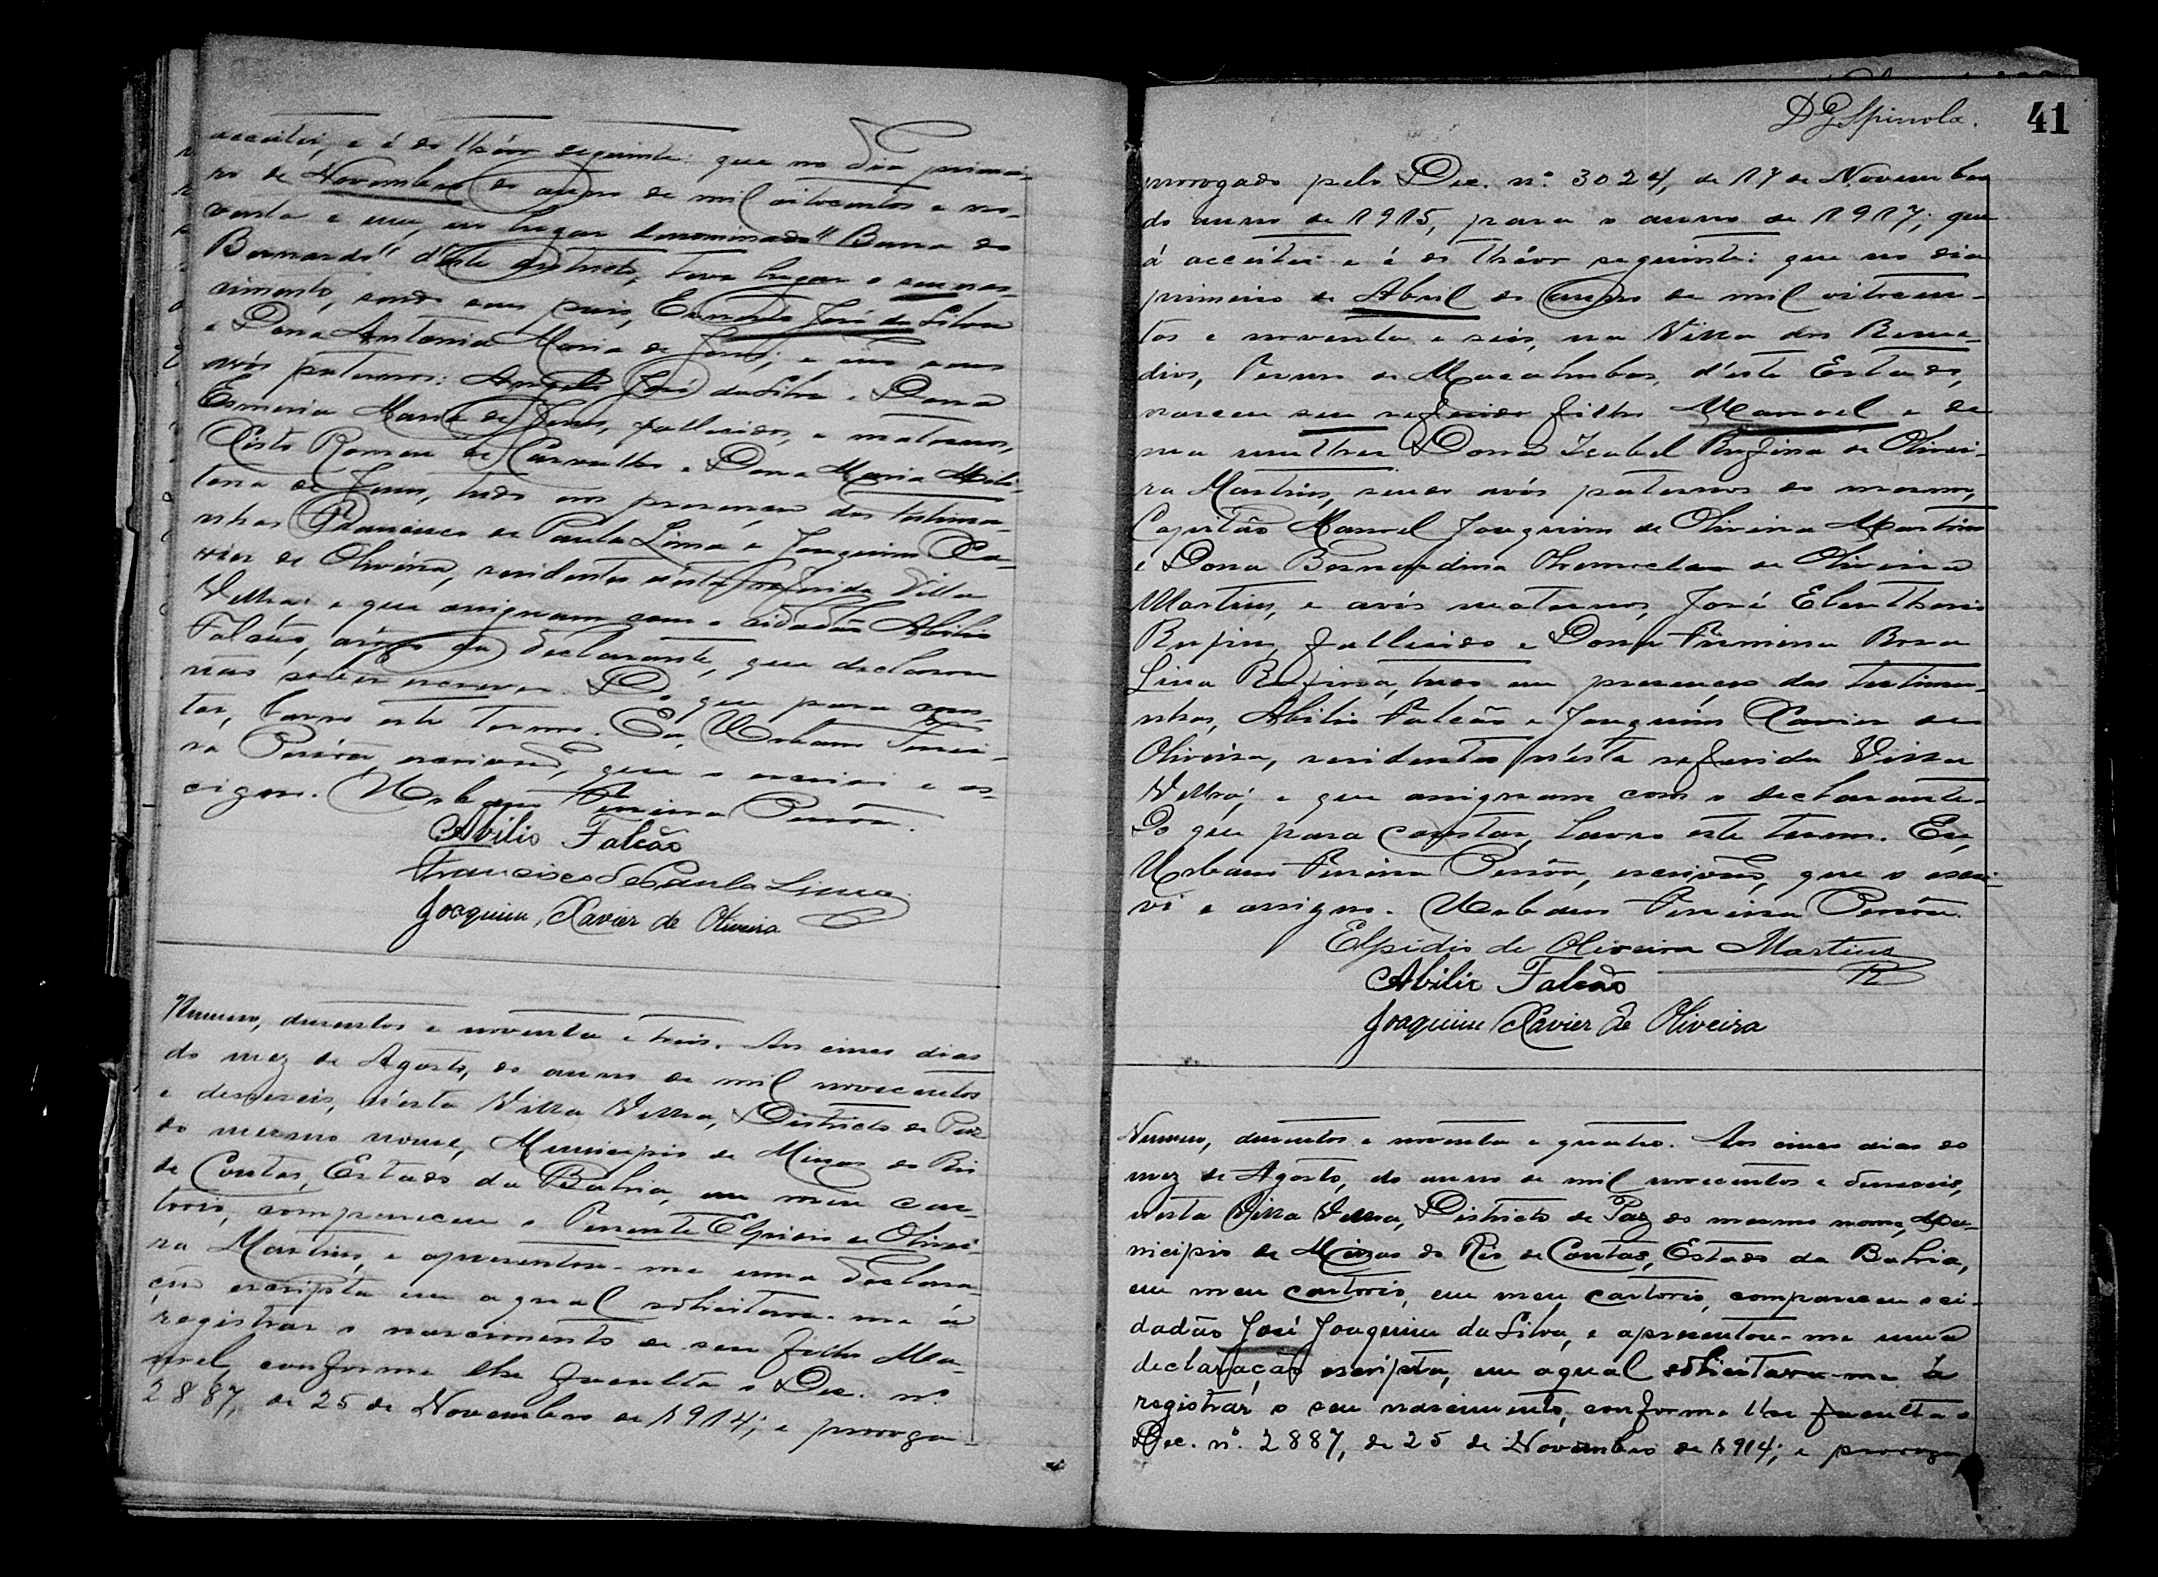 acceitei, e é do théor seguinte: que no dia primei-
ro de Novembro do anno de mil oitocentos e no-
venta e um, no lugar denominado "Barra do
Bernardo" d'este districto, teve lugar o seu nas-
cimento, sendo seus pais, Ernesto José da Silva
e Dona Antonia Maria de Jesus; e seus
avós paternos: Angelo José da Silva e Dona
Esmeria Maria de Jesus, fallecidos, e maternos,
Xisto Romão de Carvalho e Dona Maria
de Jesus, tudo em presença das testimu-
nhas Francisco de Paula Lima e Joaquim Xa-
vier de Oliveira, residentes n'esta referida Villa
Velha; e que assignam com o cidadão Abilio
Falcão, a rôgo da declarante, que declarou
não saber escrever. Do que para cons-
tar, lavro este termo. Eu, Urbano Perei-
ra Pessôa, escrivão, que o escrevi e as-
signo. Urbano Pereira Pessôa.
Abilio Falcão
Francisco de Paula Lima
Joaquim Xavier de Oliveira
Numero, dusentos e noventa e treis. Aos cinco dias
do mez de Agosto, do anno de mil novecentos
e deseseis, n'esta Villa Velha, Districto de Paz
do mesmo nome, Municipio de Minas do Rio
de Contas, Estado da Bahia, em meu car-
torio, compareceu o Tenente Elpidio de Olivei-
ra Martins, e apresentou-me uma declara-
ção escripta em a qual solicitava-me á
registrar o nascimento de seu filho Ma-
noel, conforme lhe faculta o Dec. nº
2887, de 25 de Novembro de 1914; e proroga-
D G Spinola. 41
prorogado pelo Dec. nº. 3024, de 17 de Novembro
do anno de 1915, para o anno de 1917; que
á acceitei e é do théor seguinte: que no dia
primeiro de Abril do anno de mil oitocen-
tos e noventa e seis, na Villa dos Reme-
dios, Termo de Macahubas, d'este Estado,
nasceu seu referido filho Manoel e de
sua mulher Dona Isabel Rufina de Olivei-
ra Martins, sendo avós paternos do mesmo,
Capitão Manoel Joaquim de Oliveira Martins
e Dona Bernardina de Oliveira
Martins, e avós maternos, José Eleutherio
Rufino, fallecido e Dona Firmina Rosa
Lina Rufina, tudo em presença das testimu-
nhas, Abilio Falcão e Joaquim Xavier de
Oliveira, residentes n'esta referida Villa
Velha; e que assignam com o declarante.
Do que para constar, lavro este termo. Eu,
Urbano Pereira Pessôa, escrivão, que o escre-
vi e assigno. Urbano Pereira Pessôa.
Elpidio de Oliveira Martins
Abilio Falcão
Joaquim Xavier de Oliveira
Numero, dusentos e noventa e quatro. Aos cinco dias do
mez de Agosto, do anno de mil novecentos e deseseis,
nesta Villa Velha, Districto de Paz do mesmo nome, Mu-
nicipio de Minas do Rio de Contas, Estado da Bahia,
em meu cartorio, em meu cartorio, compareceu o ci-
dadão José Joaquim da Silva, e apresentou-me uma
declaração escripta, em a qual solicitava-me á
registrar o seu nascimento, conforme lhe faculta o
Dec. nº. 2887, de 25 de Novembro de 1914; e proroga